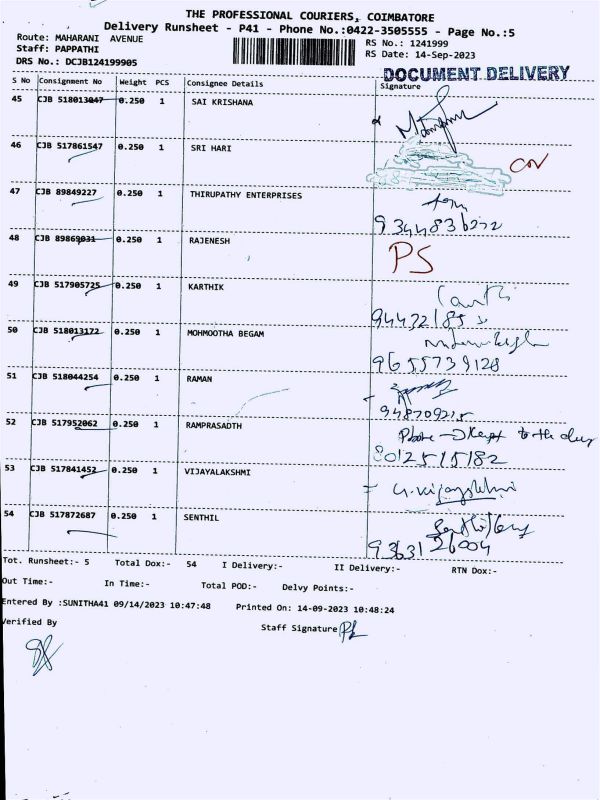 THE PROFESSIONAL COURIERS, COIMBATORE
Delivery Runsheet - P41 - Phone No.:0422-3505555 - Page No.:5
Route: MAHARANI AVENUE RS No.: 1241999
Staff: PAPPATHI RS Date: 14-Sep-2023
DRS No.: DCJB124199905
DOCUMENT DELIVERY
S No Consignment No Weight PCS Consignee Details Signature
45 CJB 518013047 0.250 1 SAI KRISHANA
46 CJB 517861547 0.250 1 SRI HARI
47 CJB 89849227 0.250 1 THIRUPATHY ENTERPRISES
9344836272
48 CJB 89869031 0.250 1 RAJENESH PS
49 CJB 517905725 0.250 1 KARTHIK
50 CJB 518013172 0.250 1 MOHMOOTHA BEGAM
9655739128
51 CJB 518044254 0.250 1 RAMAN
948709215
52 CJB 517952062 0.250 1 RAMPRASADTH
to the
8012515182
53 CJB 517841452 0.250 1 VIJAYALAKSHMI
54 CJB 517872687 0.250 1 SENTHIL
9363126004
Tot. Runsheet:- 5 Total Dox:- 54 I Delivery:- II Delivery:- RTN Dox:-
Out Time:- In Time:- Total POD:- Delvy Points:-
Entered By :SUNITHA41 09/14/2023 10:47:48 Printed On: 14-09-2023 10:48:24
Verified By Staff Signature